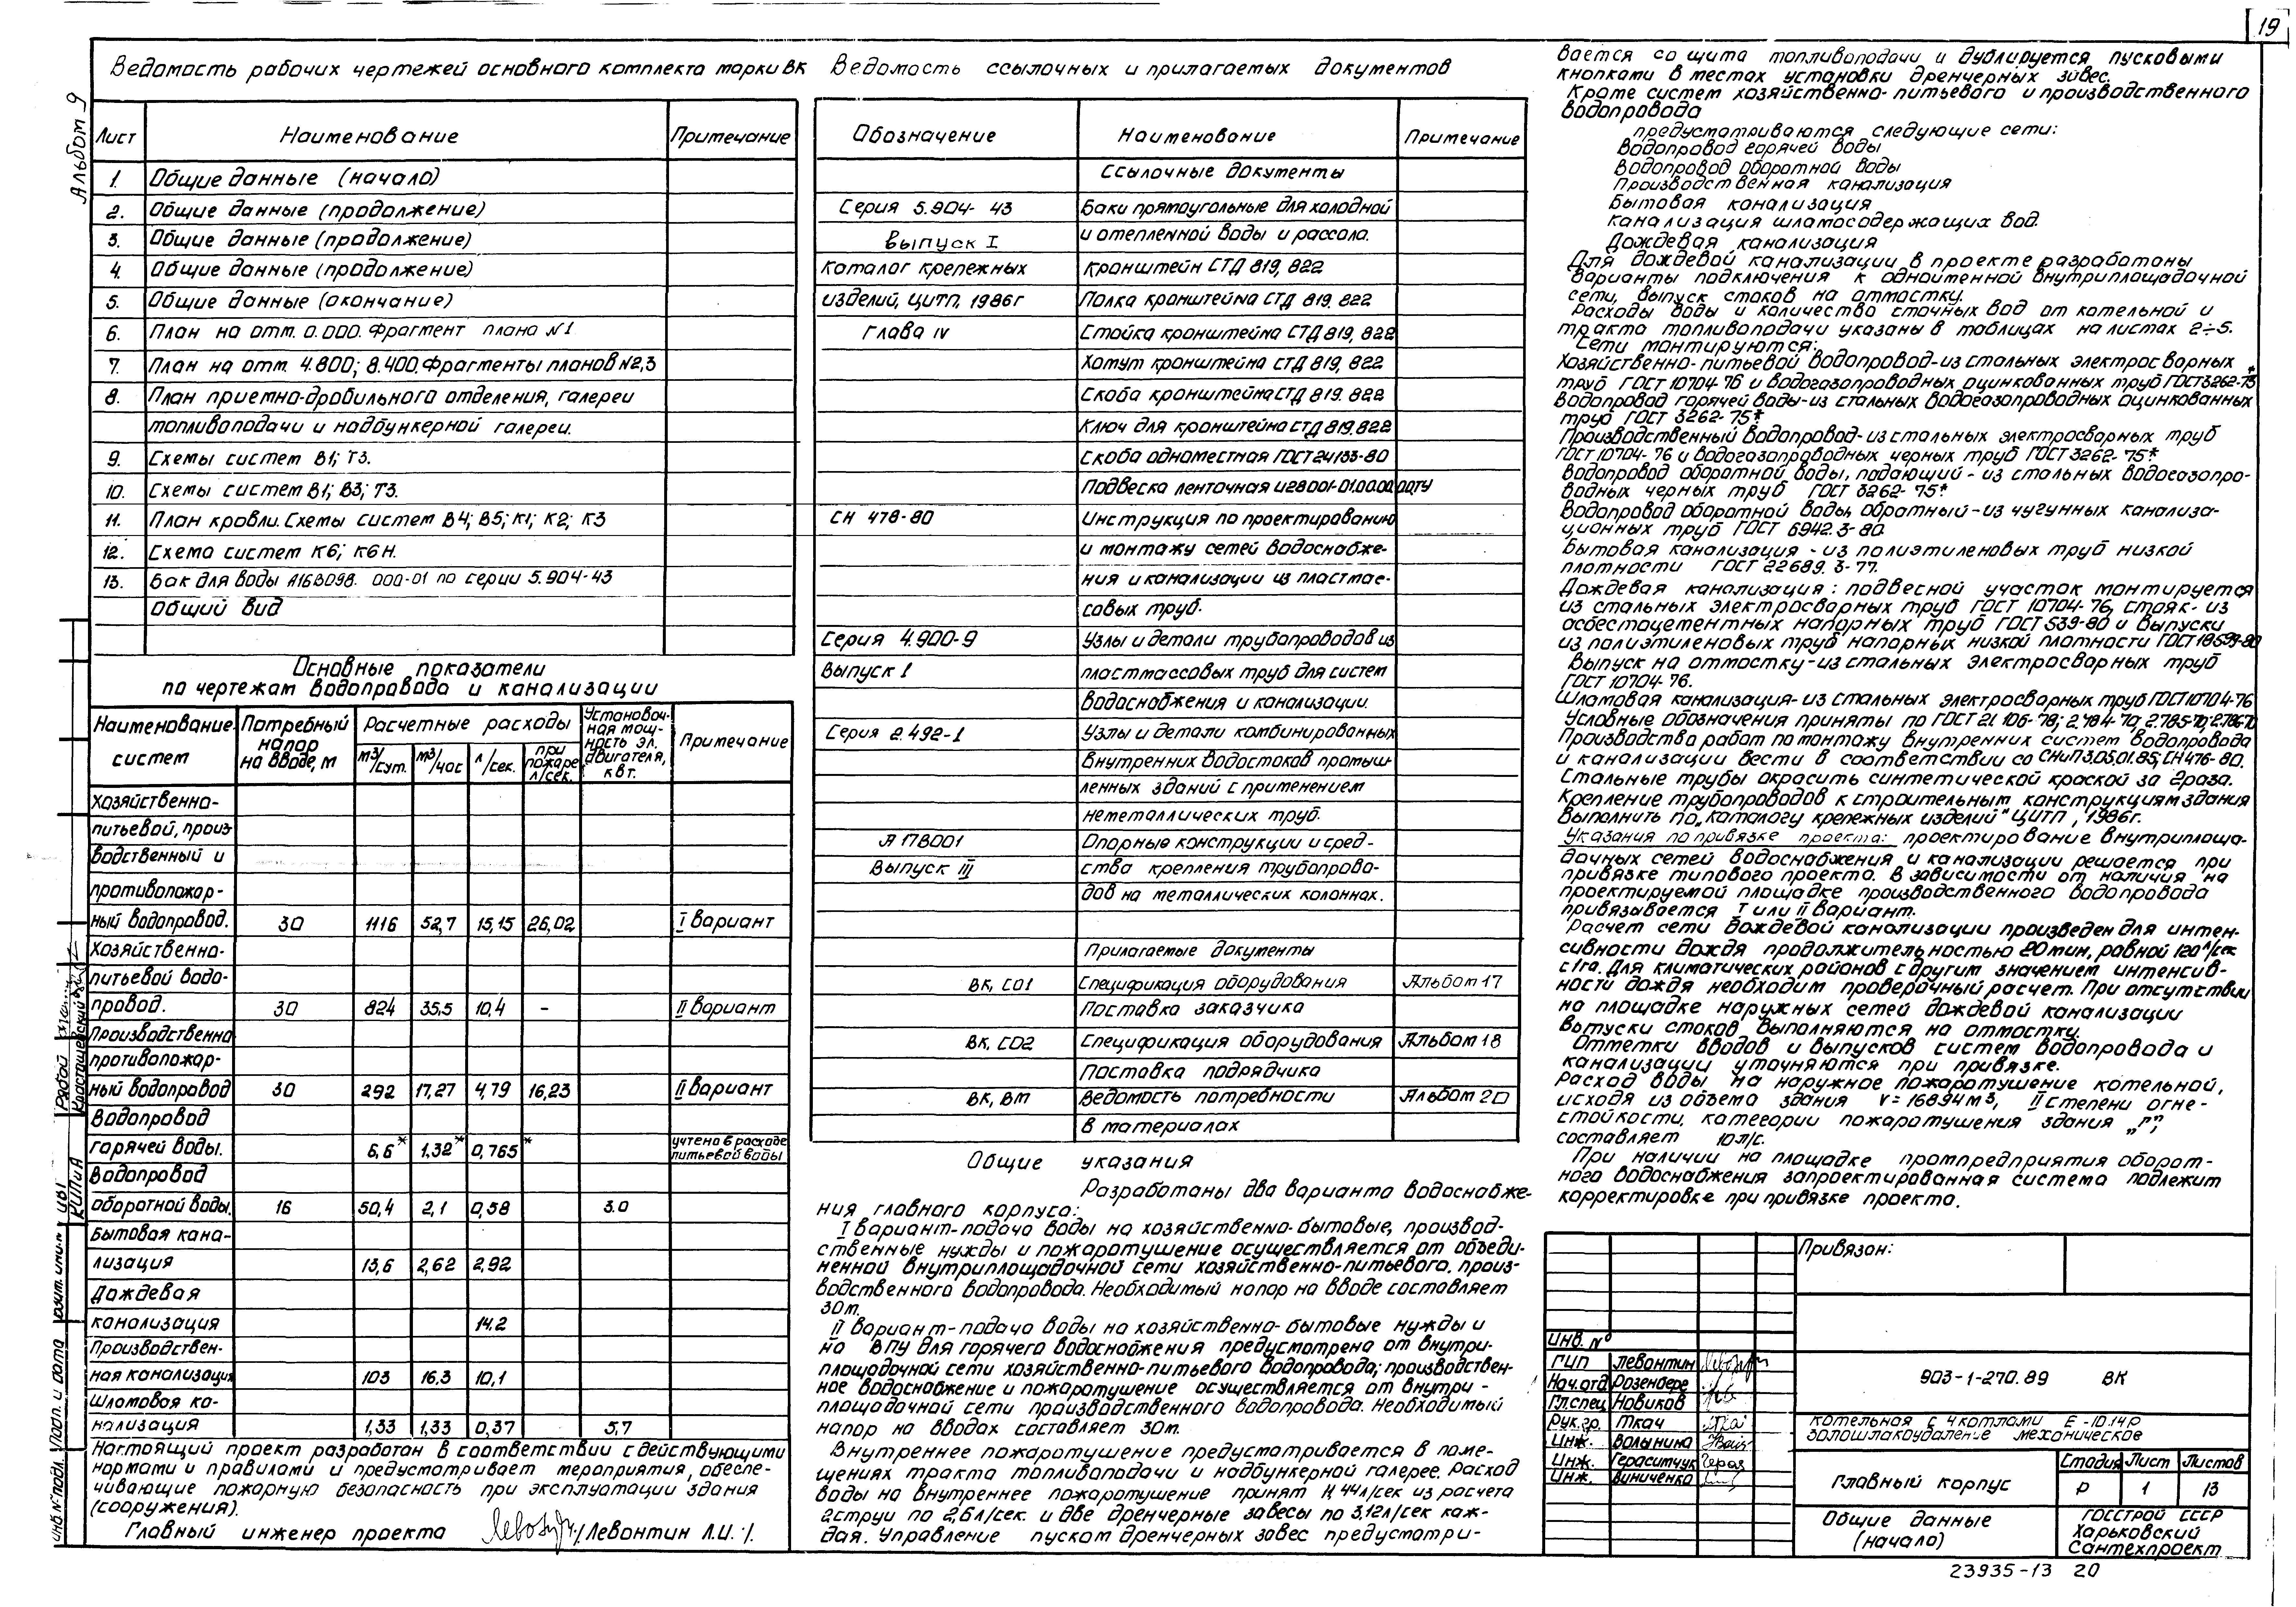 19
Альбом 9
Ведомость рабочих чертежей основного комплекта марки ВК
Лист Наименование Примечание
1. Общие данные (начало)
2. Общие данные (продолжение)
3. Общие данные (продолжение)
4. Общие данные (продолжение)
5. Общие данные (окончание)
6. План на отм. 0.000. Фрагмент плана №1
7. План на отм. 4.800; 8.400. Фрагменты планов №2,3
8. План приемно-дробильного отделения, галереи
топливоподачи и надбункерной галереи.
9. Схемы систем В1; Т3.
10. Схемы систем В1; В3; Т3.
11. План кровли. Схемы систем В4; В5; К1; К2; К3
12. Схема систем К6; К6Н.
13. Бак для воды А16В098. 000-01 по серии 5.904-43
Общий вид
Основные показатели
по чертежам водопровода и канализации
Наименование систем Потребный напор на вводе, м Расчетные расходы Установоч-ная мощ-ность эл. двигателя, квт. Примечание
м3/сут. м3/час л/сек. при пожаре л/сек.
Хозяйственно-
питьевой, произ-
водственный и
противопожар-
ный водопровод. 30 1116 52,7 15,15 26,02 I вариант
Хозяйственно-
питьевой водо-
провод. 30 824 35,5 10,4 - II вариант
Производственно
противопожар-
ный водопровод 30 292 17,27 4,79 16,23 II вариант
Водопровод
горячей воды. 6,6* 1,32* 0,765* учтено в расходе питьевой воды
Водопровод
оборотной воды. 16 50,4 2,1 0,58 3.0
Бытовая кана-
лизация 13,6 2,62 2,92
Дождевая
канализация 14.2
Производствен-
ная канализация 103 16.3 10,1
Шламовая ка-
нализация 1,33 1,33 0,37 5,7
Настоящий проект разработан в соответствии с действующими
нормами и правилами и предусматривает мероприятия, обеспе-
чивающие пожарную безопасность при эксплуатации здания
(сооружения).
Главный инженер проекта /Левонтин Л.И./.
Ведомость ссылочных и прилагаемых документов
Обозначение Наименование Примечание
Ссылочные документы
Серия 5.904-43 Баки прямоугольные для холодной
Выпуск I и отепленной воды и рассола.
Каталог крепежных Кронштейн СТД 819, 822
изделий, ЦИТП, 1986г Полка кронштейна СТД 819, 822
Глава IV Стойка кронштейна СТД 819, 822
Хомут кронштейна СТД 819, 822
Скоба кронштейна СТД 819. 822
Ключ для кронштейна СТД 819.822
Скоба одноместная ГОСТ 24133-80
Подвеска ленточная И28001-01.00.00.00ТУ
СН 478-80 Инструкция по проектированию
и монтажу сетей водоснабже-
ния и канализации из пластмас-
совых труб.
Серия 4.900-9 Узлы и детали трубопроводов из
Выпуск I пластмассовых труб для систем
водоснабжения и канализации.
Серия 2.492-1 Узлы и детали комбинированных
внутренних водостоков промыш-
ленных зданий с применением
неметаллических труб.
А17В001 Опорные конструкции и сред-
Выпуск III ства крепления трубопрово-
дов на металлических колоннах.
Прилагаемые документы
ВК, СО1 Спецификация оборудования Альбом 17
Поставка заказчика
ВК, СО2 Спецификация оборудования Альбом 18
Поставка подрядчика
ВК, ВМ Ведомость потребности Альбом 20
в материалах
Общие указания
Разработаны два варианта водоснабже-
ния главного корпуса:
I вариант-подача воды на хозяйственно-бытовые, производ-
ственные нужды и пожаротушение осуществляется от объеди-
ненной внутриплощадочной сети хозяйственно-питьевого, произ-
водственного водопровода. Необходимый напор на вводе составляет
30м.
II вариант-подача воды на хозяйственно-бытовые нужды и
на ВПУ для горячего водоснабжения предусмотрена от внутри-
площадочной сети хозяйственно-питьевого водопровода; производствен-
ное водоснабжение и пожаротушение осуществляется от внутри-
площадочной сети производственного водопровода. Необходимый
напор на вводах составляет 30м.
Внутреннее пожаротушение предусматривается в поме-
щениях тракта топливоподачи и надбункерной галерее. Расход
воды на внутреннее пожаротушение принят 11,44л/сек из расчета
2струи по 2,6л/сек. и две дренчерные завесы по 3,12л/сек каж-
дая. Управление пуском дренчерных завес предусматри-
вается со щита топливоподачи и дублируется пусковыми
кнопками в местах установки дренчерных завес.
Кроме систем хозяйственно-питьевого и производственного
водопровода
предусматриваются следующие сети:
Водопровод горячей воды
Водопровод оборотной воды
Производственная канализация
Бытовая канализация
Канализация шламосодержащих вод.
Дождевая канализация
Для дождевой канализации в проекте разработаны
варианты подключения к одноименной внутриплощадочной
сети, выпуск стоков на отмостку.
Расходы воды и количество сточных вод от котельной и
тракта топливоподачи указаны в таблицах на листах 2÷5.
Сети монтируются:
Хозяйственно-питьевой водопровод-из стальных электросварных
труб ГОСТ 10704-76 и водогазопроводных оцинкованных труб ГОСТ 3262-75*
Водопровод горячей воды-из стальных водогазопроводных оцинкованных
труб ГОСТ 3262-75*.
Производственный водопровод-из стальных электросварных труб
ГОСТ 10704-76 и водогазопроводных черных труб ГОСТ 3262-75*
Водопровод оборотной воды, подающий-из стальных водогазопро-
водных черных труб ГОСТ 3262-75*.
Водопровод оборотной воды, обратный-из чугунных канализа-
ционных труб ГОСТ 6942.3-80.
Бытовая канализация-из полиэтиленовых труб низкой
плотности ГОСТ 22689.3-77.
Дождевая канализация: подвесной участок монтируется
из стальных электросварных труб ГОСТ 10704-76, стояк-из
асбестоцементных напорных труб ГОСТ 539-80 и выпуски
из полиэтиленовых труб напорных низкой плотности ГОСТ 18599-80
Выпуск на отмостку-из стальных электросварных труб
ГОСТ 10704-76.
Шламовая канализация-из стальных электросварных труб ГОСТ 10704-76
Условные обозначения приняты по ГОСТ 21 106-78; 2.784-70, 2.785-70, 2.786-70
Производство работ по монтажу внутренних систем водопровода
и канализации вести в соответствии со СНиП 3.05.01.85; СН 476-80.
Стальные трубы окрасить синтетической краской за 2раза.
Крепление трубопроводов к строительным конструкциям здания
выполнить по „Каталогу крепежных изделий" ЦИТП, 1986г.
Указания по привязке проекта: проектирование внутриплоща-
дочных сетей водоснабжения и канализации решается при
привязке типового проекта. В зависимости от наличия на
проектируемой площадке производственного водопровода
привязывается I или II вариант.
Расчет сети дождевой канализации произведен для интен-
сивности дождя продолжительностью 20мин, равной 120 л/сек
с 1га. Для климатических районов с другим значением интенсив-
ности дождя необходим проверочный расчет. При отсутствии
на площадке наружных сетей дождевой канализации
выпуски стоков выполняются на отмостку.
Отметки вводов и выпусков систем водопровода и
канализации уточняются при привязке.
Расход воды на наружное пожаротушение котельной,
исходя из объема здания V=16894м3, II степени огне-
стойкости, категории пожаротушения здания „Г",
составляет 10л/с.
При наличии на площадке промпредприятия оборот-
ного водоснабжения запроектированная система подлежит
корректировке при привязке проекта.
Привязан:
Инв. №
ГИП Левонтин
Нач.отд Розенберг
Гл.спец Новиков
Рук.гр. Ткач
Инж. Волынина
Инж. Герасимчук
Инж. Виниченко
903-1-270.89 ВК
Котельная с 4 котлами Е-10.14Р
золошлакоудаление механическое
Главный корпус
Стадия Лист Листов
Р 1 13
Общие данные
(начало)
ГОССТРОЙ СССР
Харьковский
Сантехпроект
23935-13 20
Инв № подл. Подп. и дата Взам. инв. №
КИПиА